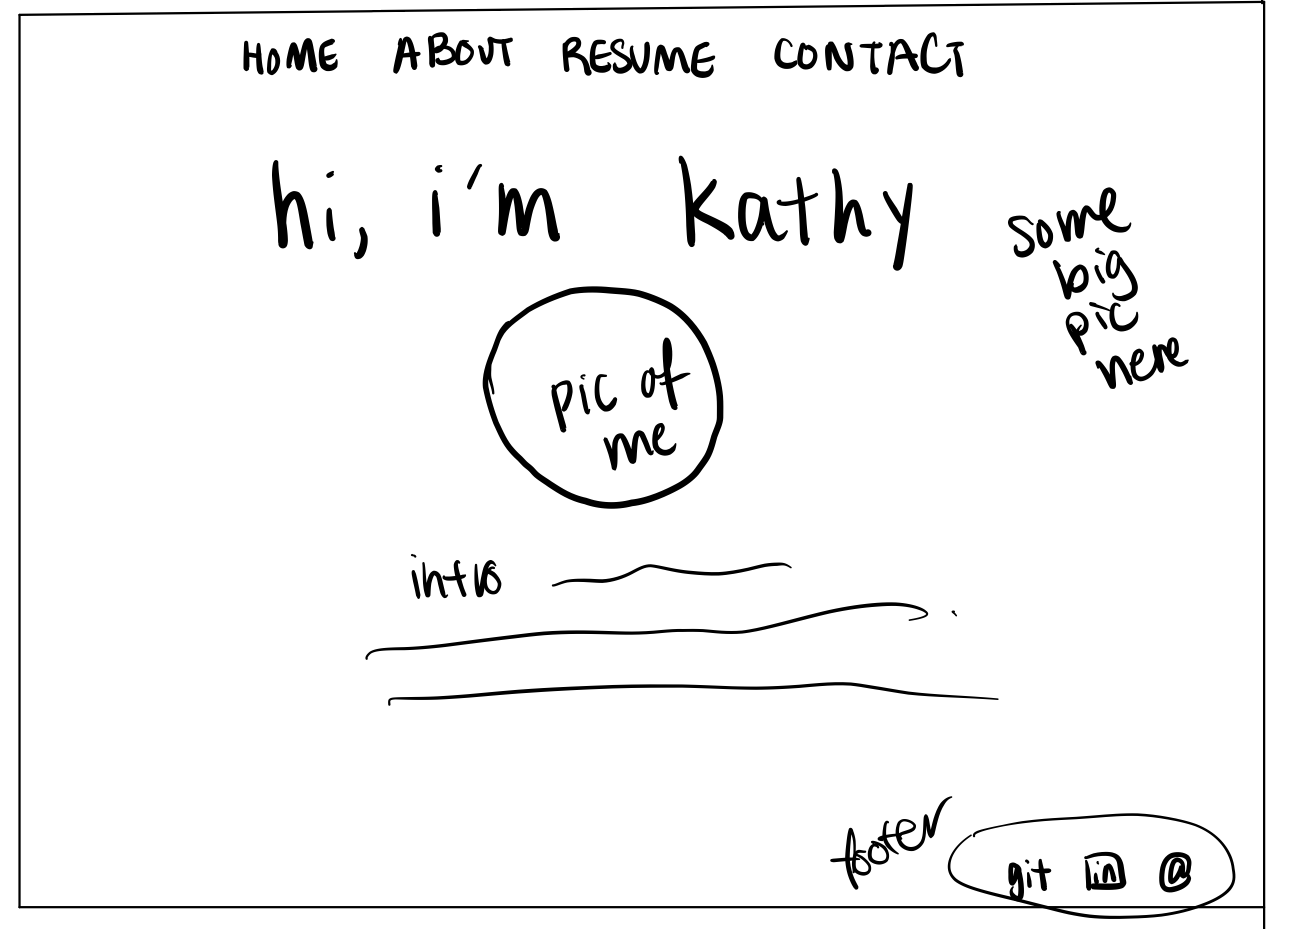 HOME ABOUT RESUME CONTACT
hi, i'm kathy
some
big
pic
here
pic of
me
intro
footer
git in @